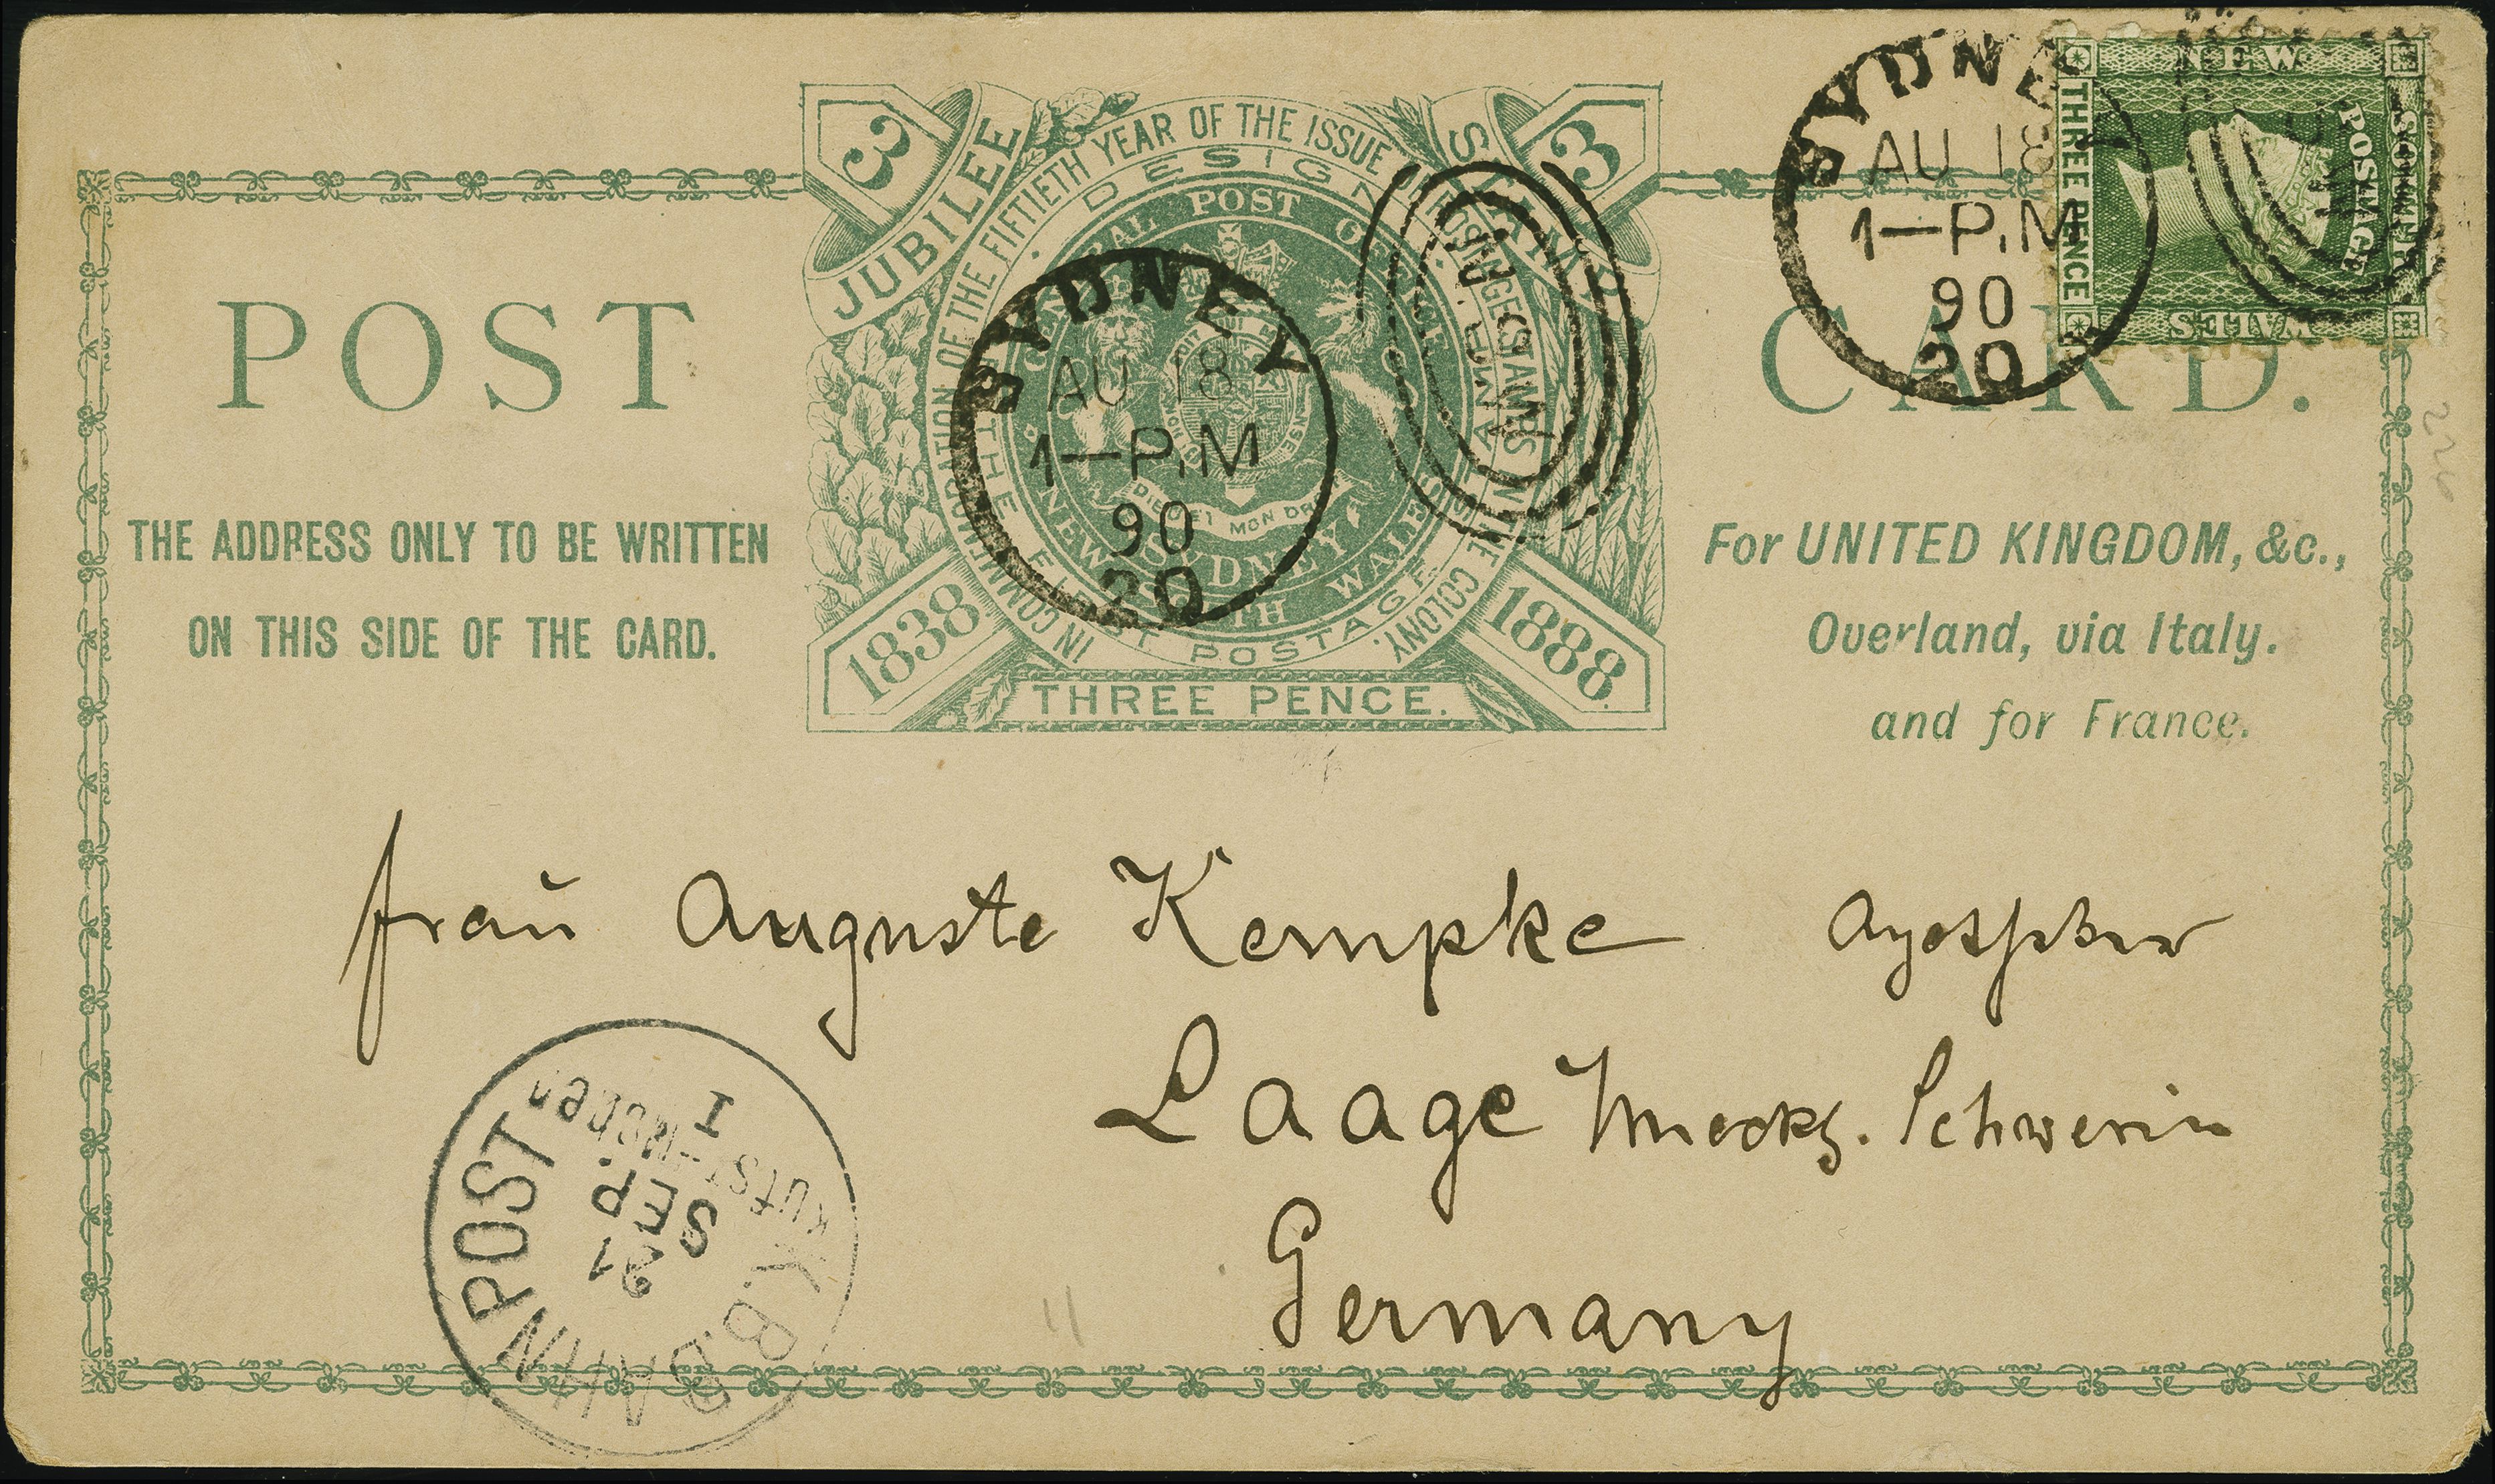 3
3
JUBILEE STAMP
IN COMMEMORATION OF THE FIFTIETH YEAR OF THE ISSUE OF POSTAGE STAMPS IN THE COLONY.
DESIGN
OF THE FIRST POSTAGE
GENERAL POST OFFICE
SYDNEY
NEW SOUTH WALES
DIEU ET MON DR
1838
1888.
THREE PENCE.
POST
CARD.
THE ADDRESS ONLY TO BE WRITTEN
ON THIS SIDE OF THE CARD.
For UNITED KINGDOM, &c.,
Overland, via Italy.
and for France.
SYDNEY
AU 18
1—P.M
90
20
N.S.W
SYDNEY
AU 18
1—P.M
90
20
NEW
SOUTH
WALES
THREE PENCE
POSTAGE
frau Auguste Kempke
Laage Meckl. Schwerin
Germany
K.B. BAHNPOST
KUFST-MÜNCHEN
I
21
SEP.